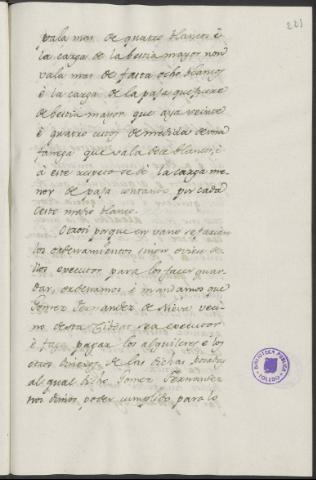 221
vala mas de quatro blancos é
la carga de la bestia mayor non
vala mas de fasta ocho blancos
é la carga de la paja que fuere
de bestia mayor que aya veinte
é quatro
que vala doce blancos, é
á este respeto se dé la carga me
nor de paja contando por cada
cesto medio blanco.
Otrosi porque en vano se farian
los ordenamientos si non oviese de
llos executor para los facer guar
dar, ordenamos é mandamos que
Gomez Fernandez de Nieva veci
no desta Cibdat sea executor
é faga pagar los alquileres é los
otros dineros de las dichas
al qual dicho Gomez Fernandez
nos damos poder cumplido para lo
BIBLIOTECA PUBLICA
TOLEDO